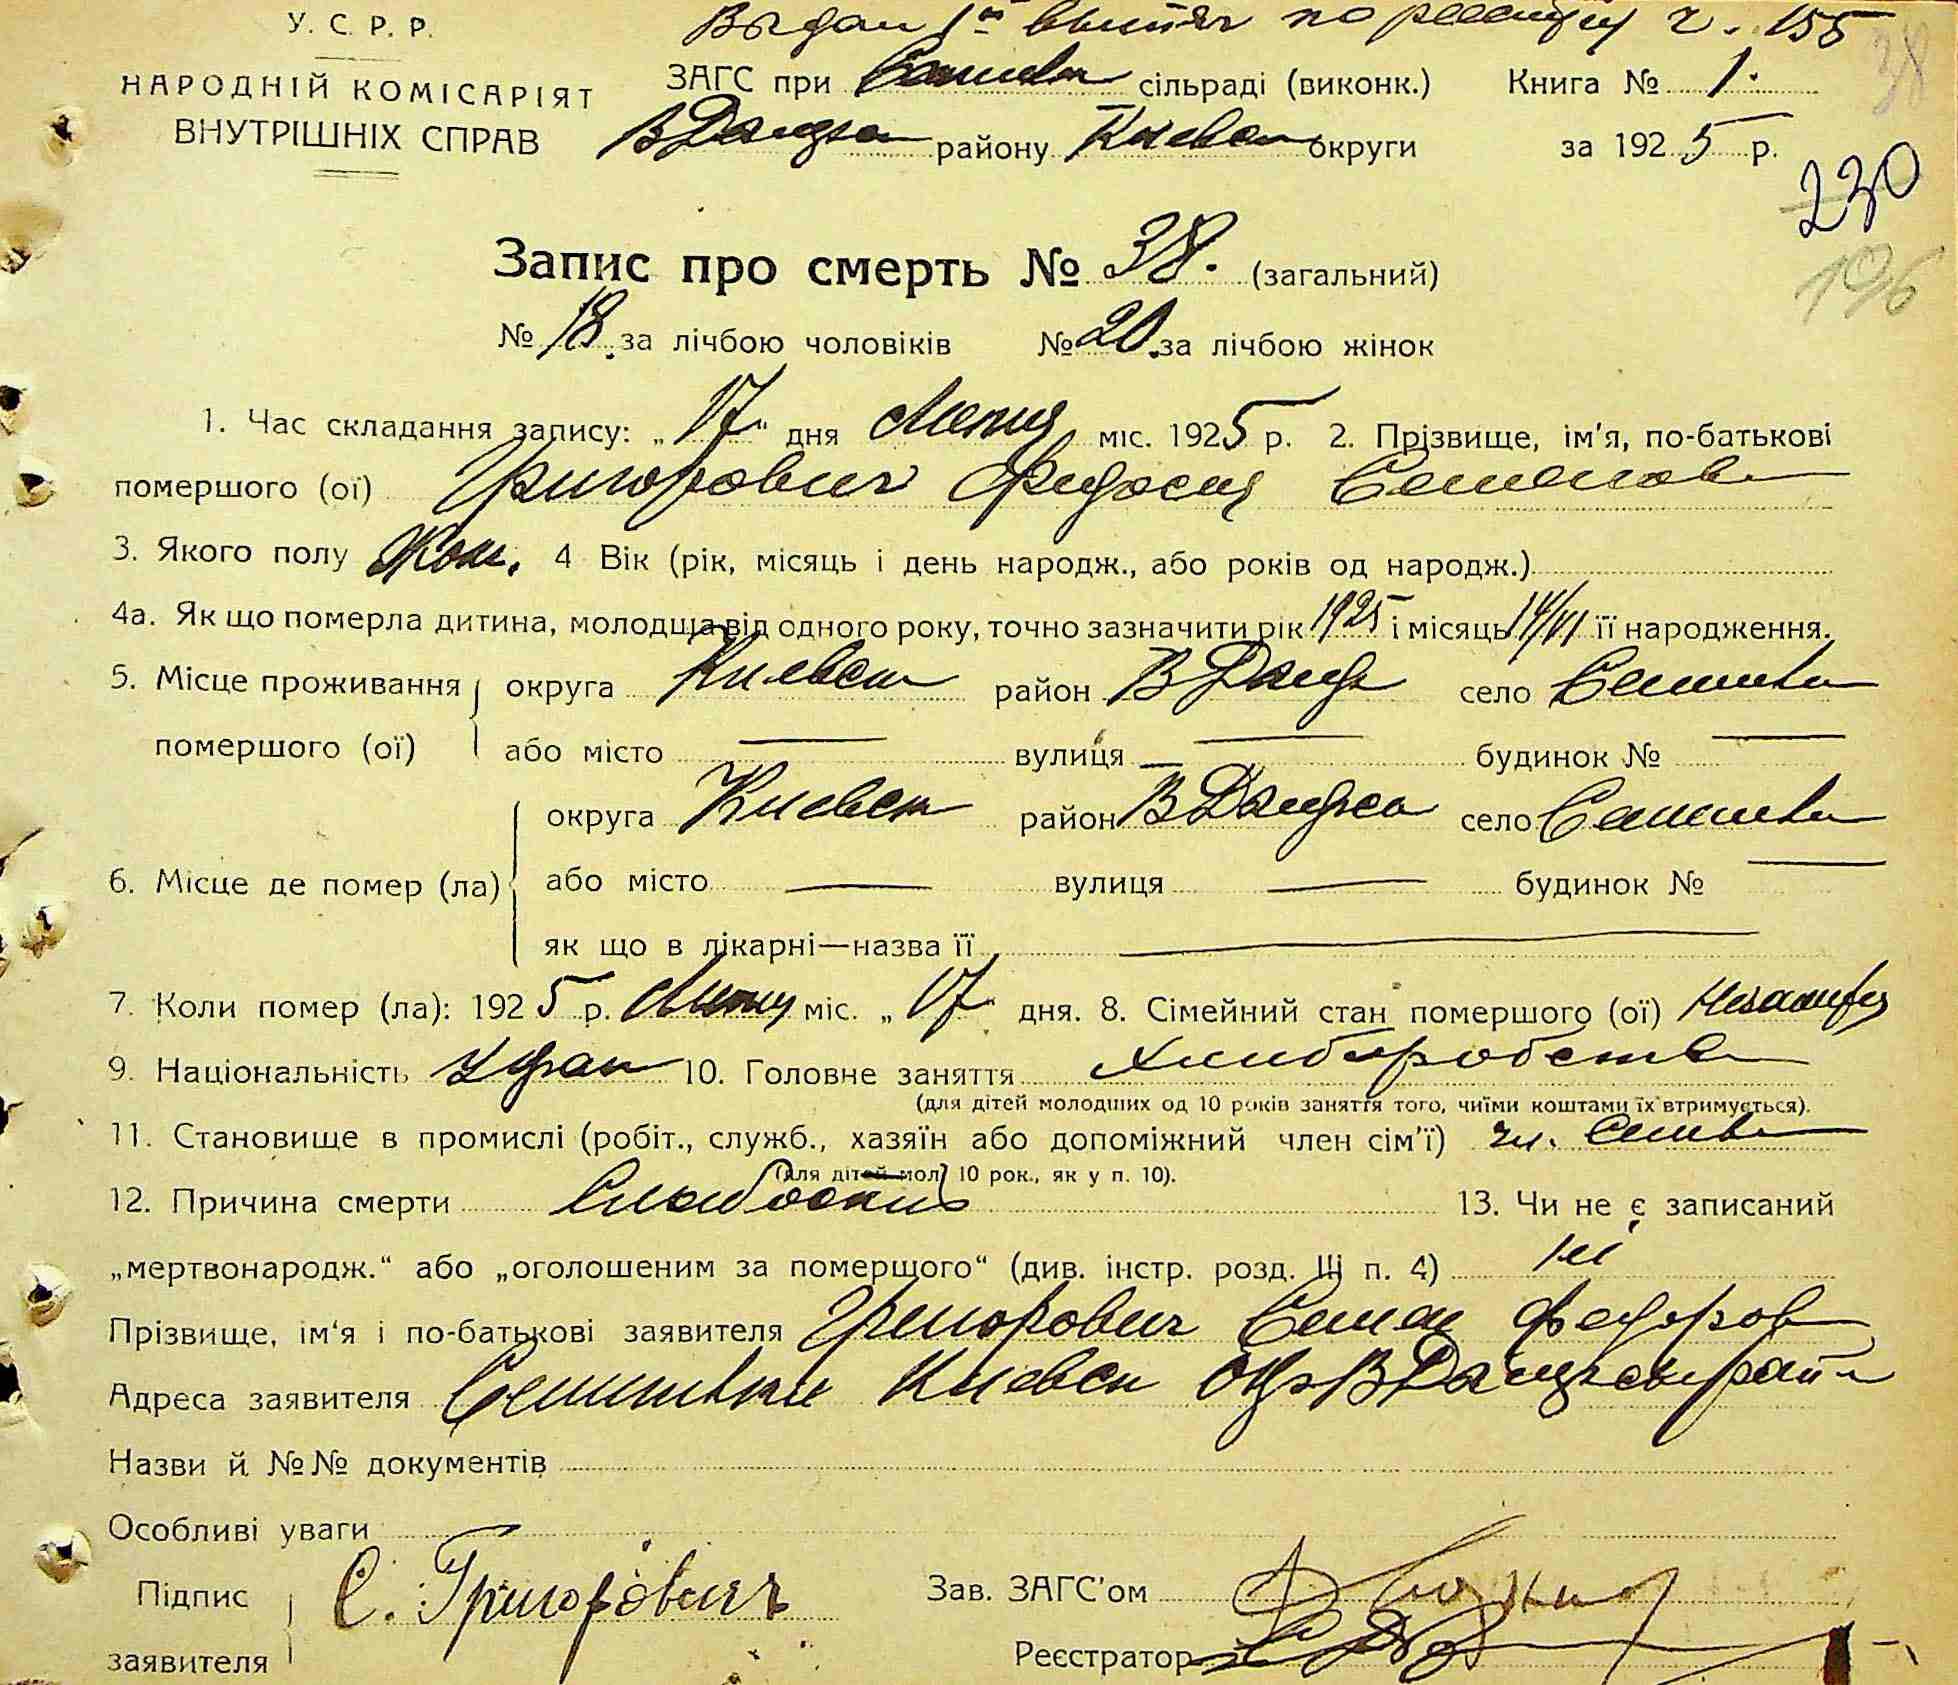 Выдан 1й вытяг по реестру ч. 155
У. С. Р. Р.
38
НАРОДНІЙ КОМІСАРІЯТ
ВНУТРІШНІХ СПРАВ
ЗАГС при сільраді (виконк.) Книга № 1.
В Дымерск району Киевск округи за 1925 р.
230
196
Запис про смерть № 38. (загальний)
№ 18. за лічбою чоловіків № 20. за лічбою жінок
1. Час складання запису: „17“ дня Липця міс. 1925 р. 2. Прізвище, ім'я, по-батькові
помершого (ої) Григорович Фидосия Семенов
3. Якого полу Жен. 4 Вік (рік, місяць і день народж., або років од народж.)
4а. Як що померла дитина, молодша від одного року, точно зазначити рік 1925 і місяць 14/VI її народження.
5. Місце проживання округа Киевск район село
помершого (ої) або місто — вулиця — будинок № —
округа Киевск район село
6. Місце де помер (ла) або місто — вулиця — будинок № —
як що в лікарні—назва її —
7. Коли помер (ла): 1925 р. Липця міс. „17“ дня. 8. Сімейний стан помершого (ої)
9. Національність Укран 10. Головне заняття Хлиборобство
(для дітей молодших од 10 років заняття того, чиїми коштами їх втримується).
11. Становище в промислі (робіт., служб., хазяїн або допоміжний член сім'ї) чл. Семьи
(для дітей мол. 10 рок., як у п. 10).
12. Причина смерти Слабость 13. Чи не є записаний
„мертвонародж.“ або „оголошеним за помершого“ (див. інстр. розд. III п. 4) ні
Прізвище, ім'я і по-батькові заявителя Григорович Семен Федоров
Адреса заявителя Киевск Окр
Назви й №№ документів
Особливі уваги
Підпис С. Григоровичъ Зав. ЗАГС'ом
заявителя Реєстратор